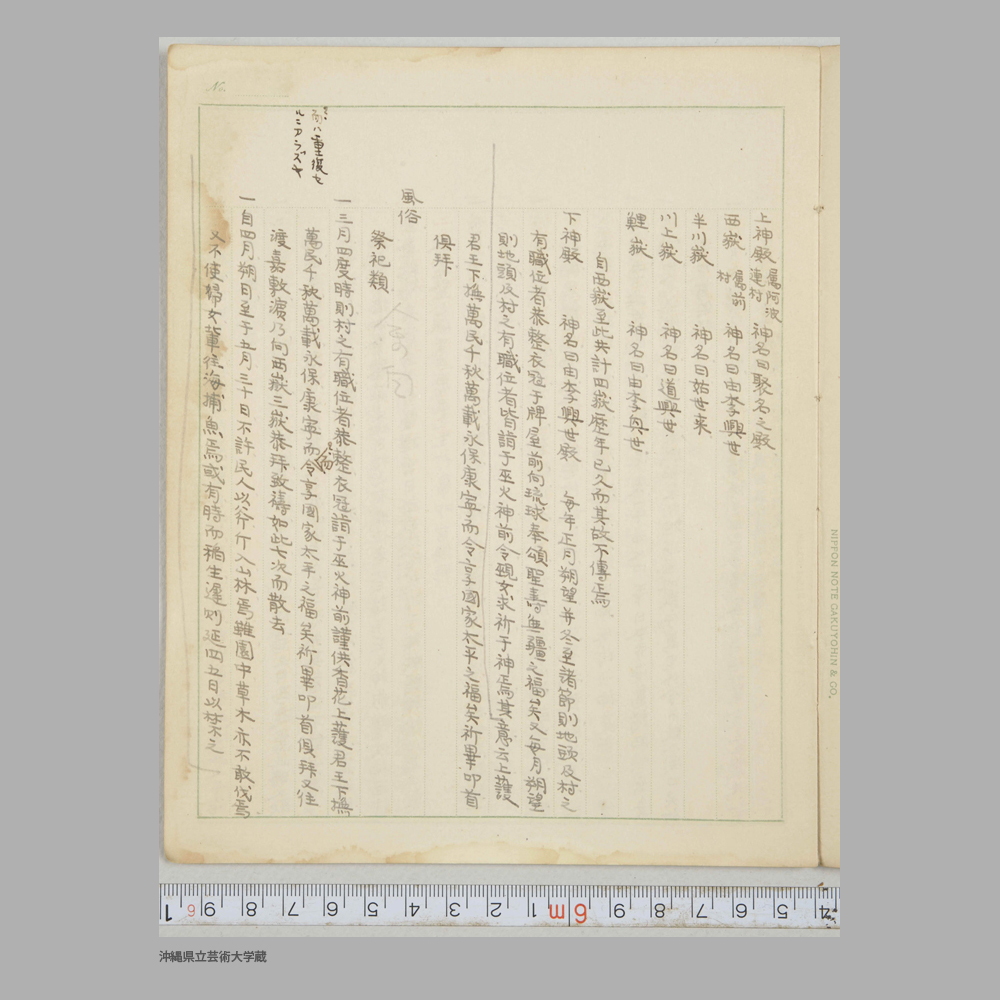 上神殿 屬阿波連村 神名曰聚名之殿
西嶽 屬前村 神名曰由李興世
半川嶽 神名曰姑世来
川上嶽 神名曰道興世
鯉嶽 神名曰由李興世
自西嶽至此共計四嶽歷年已久而其故不傳焉
下神殿 神名曰由李興世殿 每年正月朔望并冬至諸節則地頭及村之
有職位者恭整衣冠于牌屋前向琉球奉頌聖壽無疆之福矣又每月朔望
則地頭及村之有職位者皆詣于巫火神前令覡女求祈于神焉其意云上護
君王下撫萬民千秋萬載永保康寧而令享國家太平之福矣祈畢叩首
俱拜
風俗
祭祀類
一三月四度時則村之有職位者恭整衣冠詣于巫火神前謹供香花上護君王下撫
萬民千秋萬載永保康寧而令享國家太平之福矣祈畢叩首俱拜又往
渡嘉敷濱乃向西嶽三嶽恭拜致禱如此七次而散去
一自四月朔日至于五月三十日不許民人以斧斤入山林焉雖園中草木亦不敢伐焉
又不使婦女輩往海捕魚焉或有時而稲生遲則延四五日以禁之
而ハ重複セ
ルニアラズヤ
No.
NIPPON NOTE GAKUYOHIN & CO.
1 6 9 8 7 6 5 4 3 2 1 6m 9 8 7 6 5 4
沖縄県立芸術大学蔵